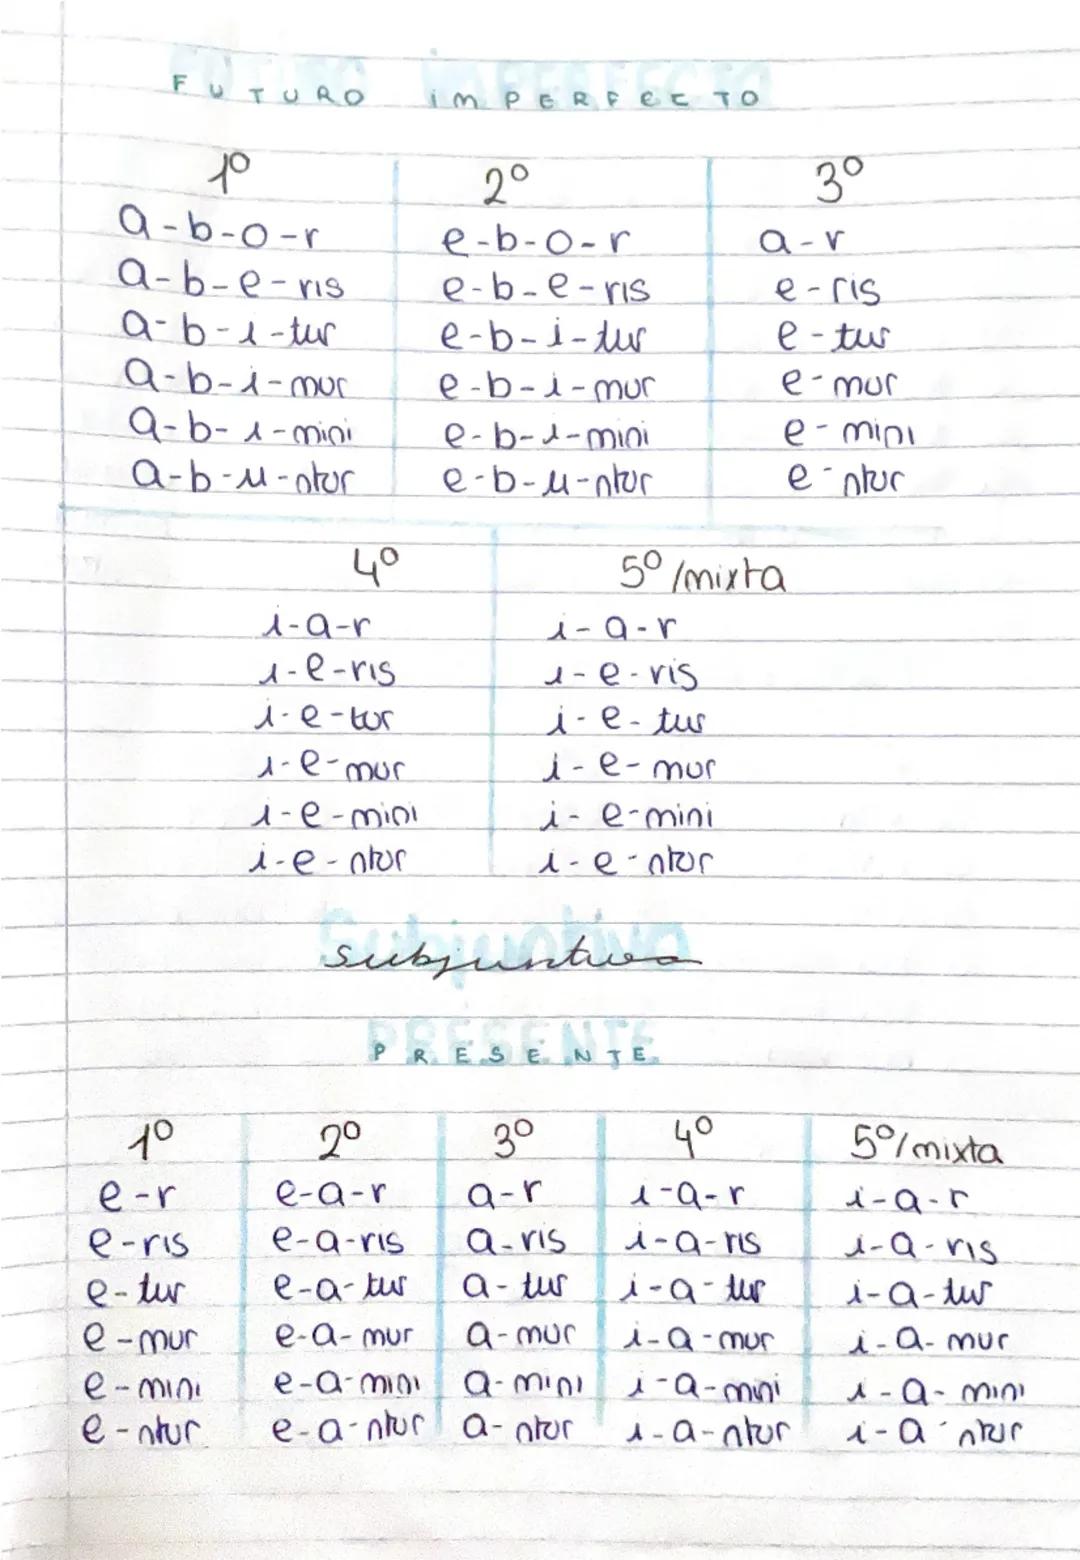 FUTURO imPERFecTO
1º 2º 3º
a-b-o-r e-b-o-r a-r
a-b-e-ris e-b-e-ris e-ris
a-b-i-tur e-b-i-tur e-tur
a-b-i-mur e-b-i-mur e-mur
a-b-i-mini e-b-i-mini e-mini
a-b-u-ntur e-b-u-ntur e-ntur
4º 5º/mixta
i-a-r i-a-r
i-e-ris i-e-ris
i-e-tur i-e-tur
i-e-mur i-e-mur
i-e-mini i-e-mini
i-e-ntur i-e-ntur
Subjuntivo
PRESENTE
1º 2º 3º 4º 5º/mixta
e-r e-a-r a-r i-a-r i-a-r
e-ris e-a-ris a-ris i-a-ris i-a-ris
e-tur e-a-tur a-tur i-a-tur i-a-tur
e-mur e-a-mur a-mur i-a-mur i-a-mur
e-mini e-a-mini a-mini i-a-mini i-a-mini
e-ntur e-a-ntur a-ntur i-a-ntur i-a-ntur